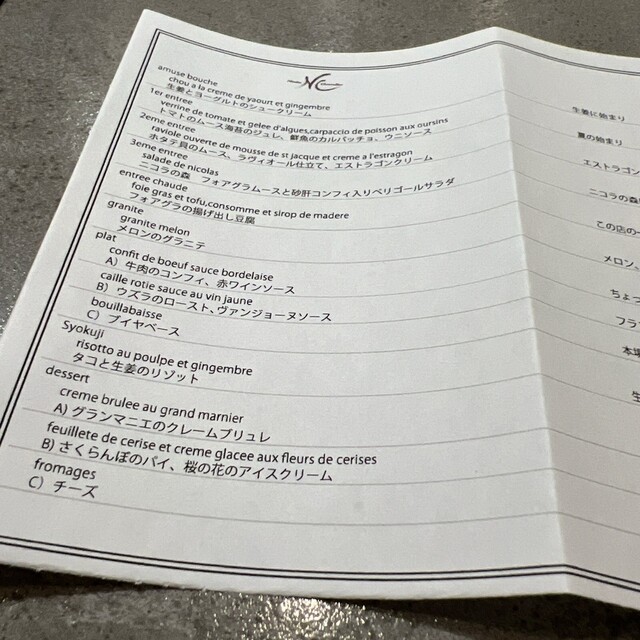 NC
amuse bouche
chou a la creme de yaourt et gingembre
生姜とヨーグルトのシュークリーム
1er entree
verrine de tomate et gelee d'algues,carpaccio de poisson aux oursins
トマトのムース海苔のジュレ、鮮魚のカルパッチョ、ウニソース
2eme entree
raviole ouverte de mousse de st jacque et creme a l'estragon
ホタテ貝のムース、ラヴィオール仕立て、エストラゴンクリーム
3eme entree
salade de nicolas
ニコラの森　フォアグラムースと砂肝コンフィ入りペリゴールサラダ
entree chaude
foie gras et tofu,consomme et sirop de madere
フォアグラの揚げ出し豆腐
granite
granite melon
メロンのグラニテ
plat
confit de boeuf sauce bordelaise
A）牛肉のコンフィ、赤ワインソース
caille rotie sauce au vin jaune
B）ウズラのロースト、ヴァンジョーヌソース
bouillabaisse
C）ブイヤベース
Syokuji
risotto au poulpe et gingembre
タコと生姜のリゾット
dessert
creme brulee au grand marnier
A) グランマニエのクレームブリュレ
feuillete de cerise et creme glacee aux fleurs de cerises
B) さくらんぼのパイ、桜の花のアイスクリーム
fromages
C）チーズ
生姜に始まり
夏の始まり
エストラゴン
ニコラの森
この店の
メロン、
ちょ
フラ
本場
生